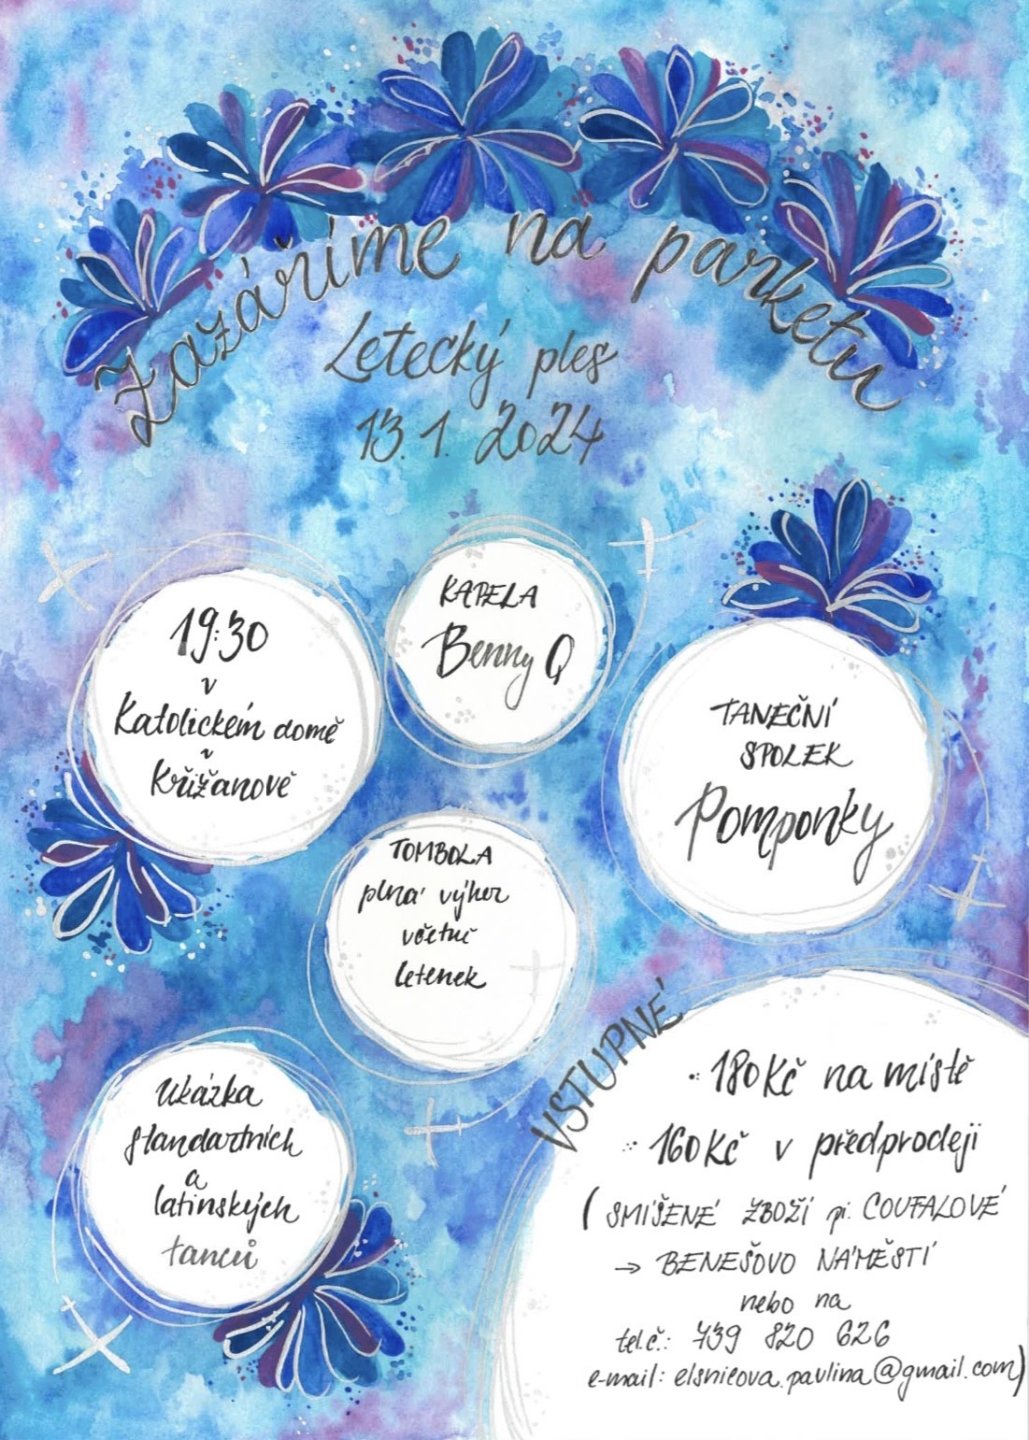 Zazáříme na parketu
Letecký ples
13. 1. 2024
19:30
v
Katolickém domě
v
Křižanově
KAPELA
Benny Q
TANEČNÍ
SPOLEK
Pomponky
TOMBOLA
plná výher
včetně
letenek
Ukázka
standartních
a
latinských
tanců
VSTUPNÉ
180Kč na místě
160Kč v předprodeji
(SMÍŠENÉ ZBOŽÍ pí. COUFALOVÉ
→ BENEŠOVO NÁMĚSTÍ
nebo na
tel.č.: 739 820 626
e-mail: elsnicova.pavlina@gmail.com)